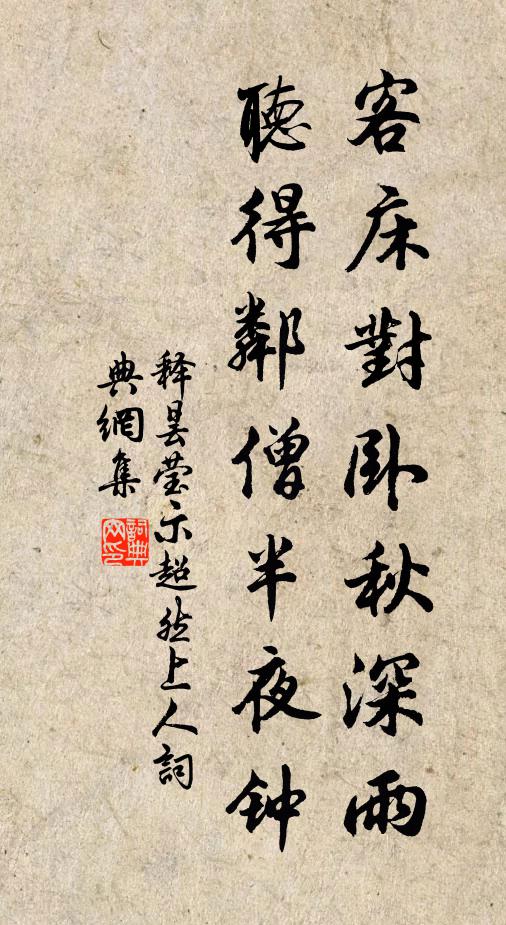 客床對卧秋深雨
聽得鄰僧半夜钟
释曇莹示超然上人詞
典網集
詞典网印